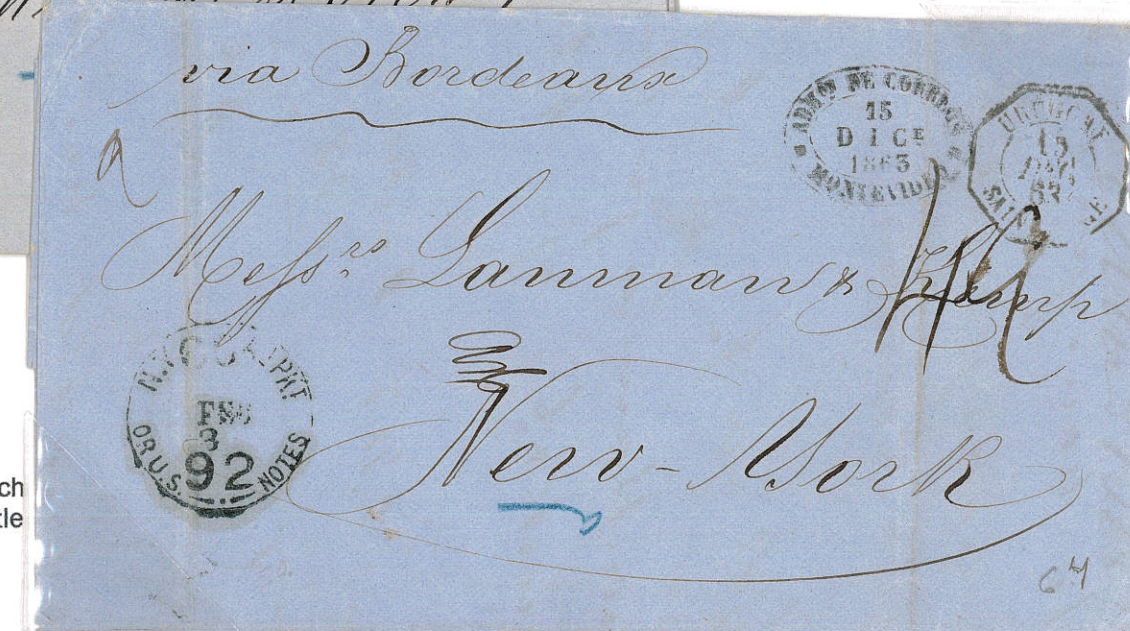 via Bordeaux
ADMON DE CORREOS
15
DICE
1863
MONTEVIDEO
URUGUAY
15
DEC
63
2
Messrs. Lanman & Kemp
New-York
N.Y. PKT
FEB
3
92
OR U.S. NOTES
ch
tle
64